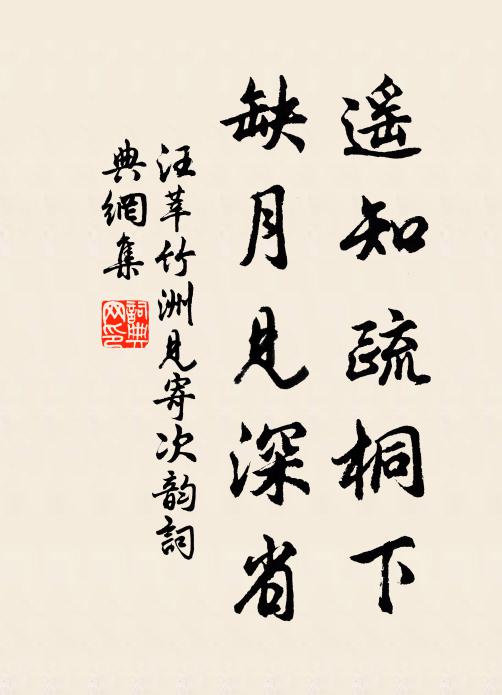 遥知疏桐下
缺月见深省
汪莘竹洲见寄次韵词
典网集
词典网印